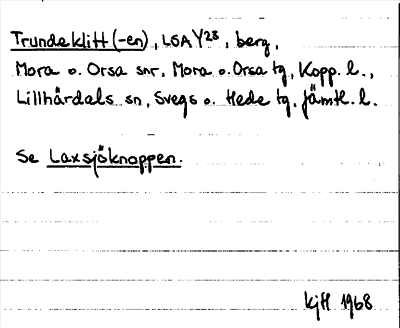 Trundeklitt (-en), LSA Y28, berg,
Mora o. Orsa snr, Mora o. Orsa tg, Kopp. l.,
Lillhärdals sn, Svegs o. Hede tg, Jämtl. l.
Se Laxsjöknoppen.
KjH 1968